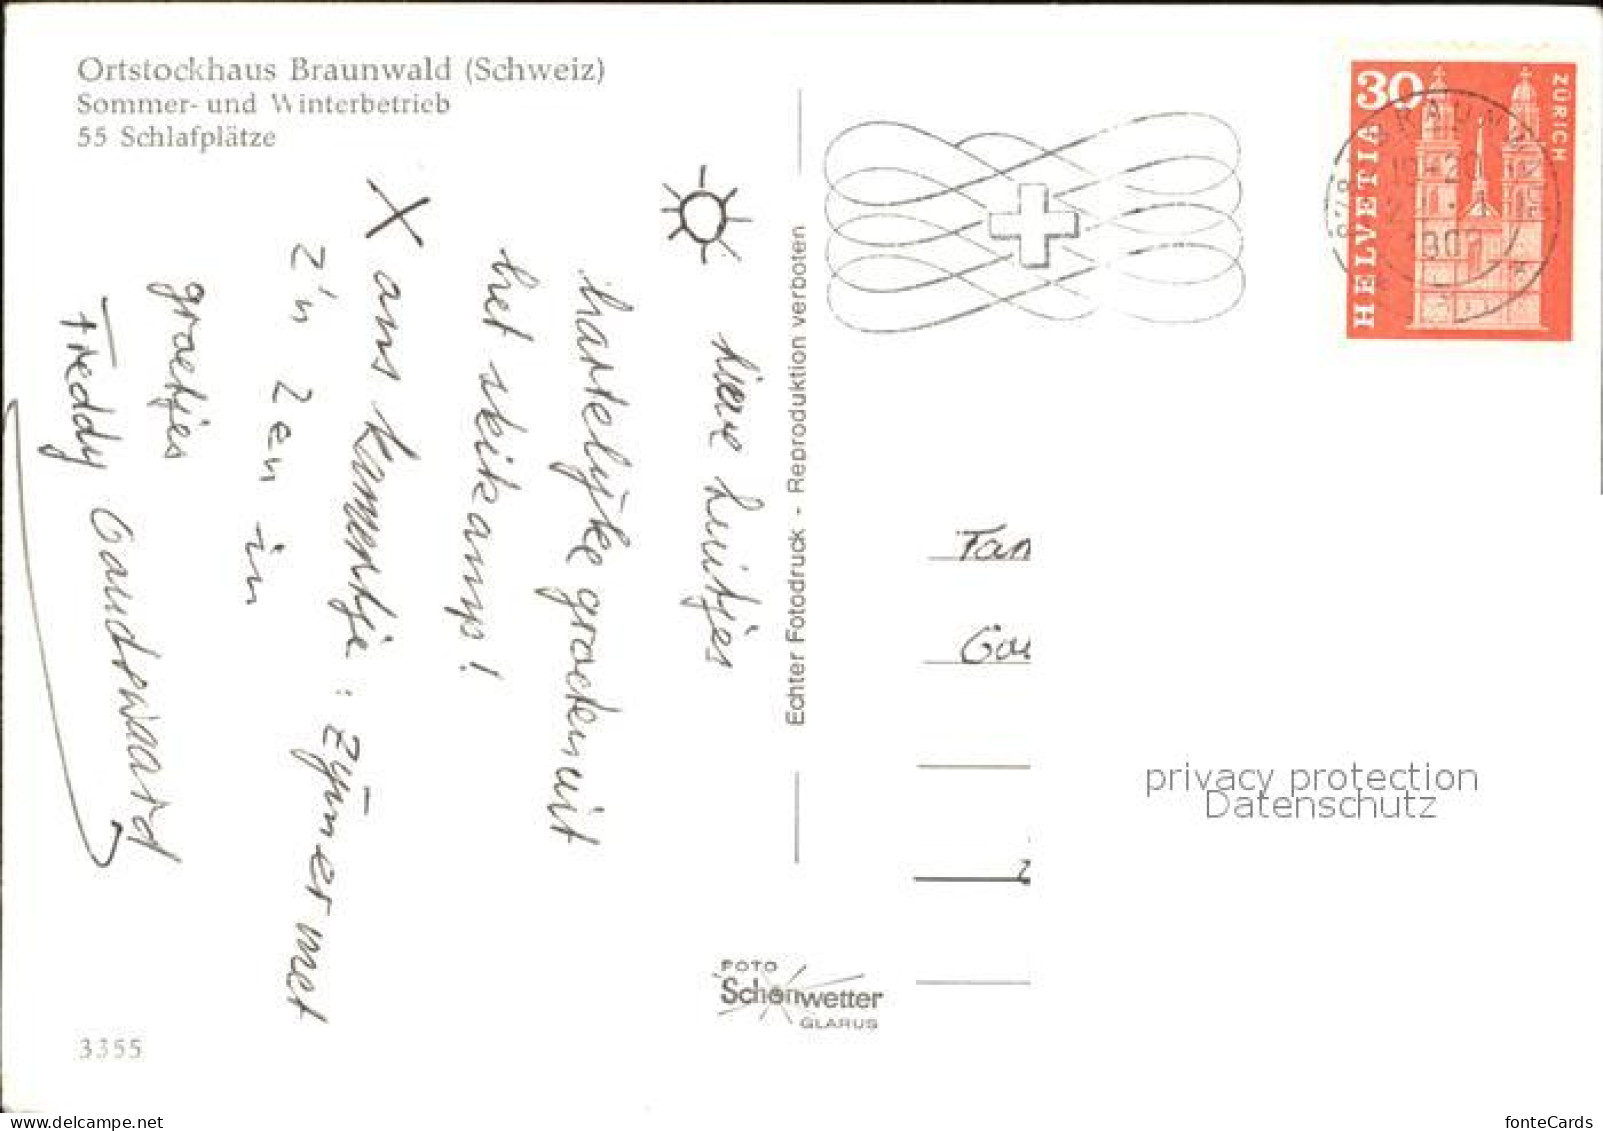 Ortstockhaus Braunwald (Schweiz)
Sommer- und Winterbetrieb
55 Schlafplätze
lieve luitjes
hartelijke groeten uit
het skikamp!
X ons kamertje: zijn er met
z'n 2en in
groetjes
Freddy Goudswaard
Echter Fotodruck - Reproduktion verboten
30
HELVETIA
ZÜRICH
Fam
Gou
privacy protection
Datenschutz
FOTO
Schönwetter
GLARUS
3355
fonteCards
delcampe.net